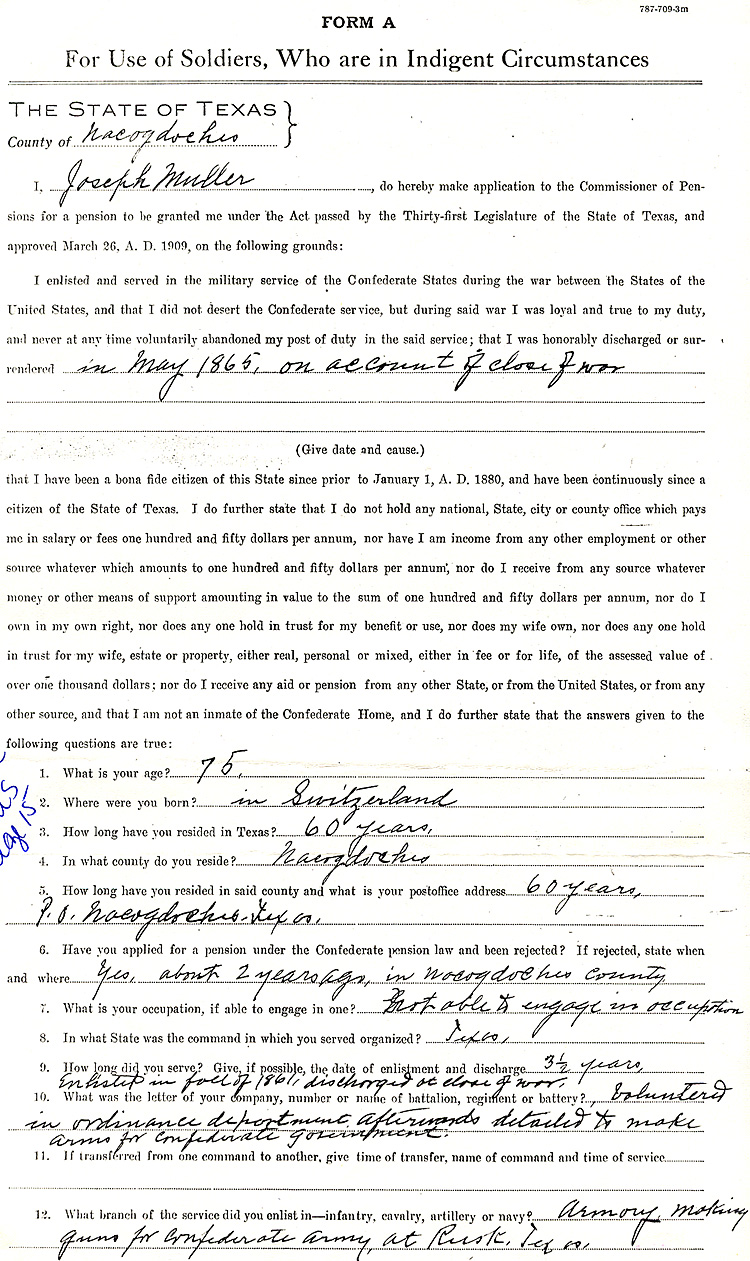 787-709-3m
FORM A
For Use of Soldiers, Who are in Indigent Circumstances
THE STATE OF TEXAS }
County of Nacogdoches
I, Joseph Muller, do hereby make application to the Commissioner of Pen-
sions for a pension to be granted me under the Act passed by the Thirty-first Legislature of the State of Texas, and
approved March 26, A. D. 1909, on the following grounds:
I enlisted and served in the military service of the Confederate States during the war between the States of the
United States, and that I did not desert the Confederate service, but during said war I was loyal and true to my duty,
and never at any time voluntarily abandoned my post of duty in the said service; that I was honorably discharged or sur-
rendered in May 1865, on account of close of war
(Give date and cause.)
that I have been a bona fide citizen of this State since prior to January 1, A. D. 1880, and have been continuously since a
citizen of the State of Texas. I do further state that I do not hold any national, State, city or county office which pays
me in salary or fees one hundred and fifty dollars per annum, nor have I am income from any other employment or other
source whatever which amounts to one hundred and fifty dollars per annum, nor do I receive from any source whatever
money or other means of support amounting in value to the sum of one hundred and fifty dollars per annum, nor do I
own in my own right, nor does any one hold in trust for my benefit or use, nor does my wife own, nor does any one hold
in trust for my wife, estate or property, either real, personal or mixed, either in fee or for life, of the assessed value of
over one thousand dollars; nor do I receive any aid or pension from any other State, or from the United States, or from any
other source, and that I am not an inmate of the Confederate Home, and I do further state that the answers given to the
following questions are true:
1. What is your age? 75.
2. Where were you born? in Switzerland
3. How long have you resided in Texas? 60 years,
4. In what county do you reside? Nacogdoches
5. How long have you resided in said county and what is your postoffice address 60 years,
P.O. Nacogdoches. Texas.
6. Have you applied for a pension under the Confederate pension law and been rejected? If rejected, state when
and where Yes, about 2 years ago, in Nacogdoches County
7. What is your occupation, if able to engage in one? not able to engage in occupation
8. In what State was the command in which you served organized? Texas,
9. How long did you serve? Give, if possible, the date of enlistment and discharge 3½ years,
Enlisted in fall of 1861, discharged at close of war.
10. What was the letter of your company, number or name of battalion, regiment or battery? Voluntered
in ordinance department, afterwards detailed to make
arms for Confederate government.
11. If transferred from one command to another, give time of transfer, name of command and time of service
12. What branch of the service did you enlist in—infantry, cavalry, artillery or navy? Armory, making
guns for Confederate army, at Rusk, Texas.